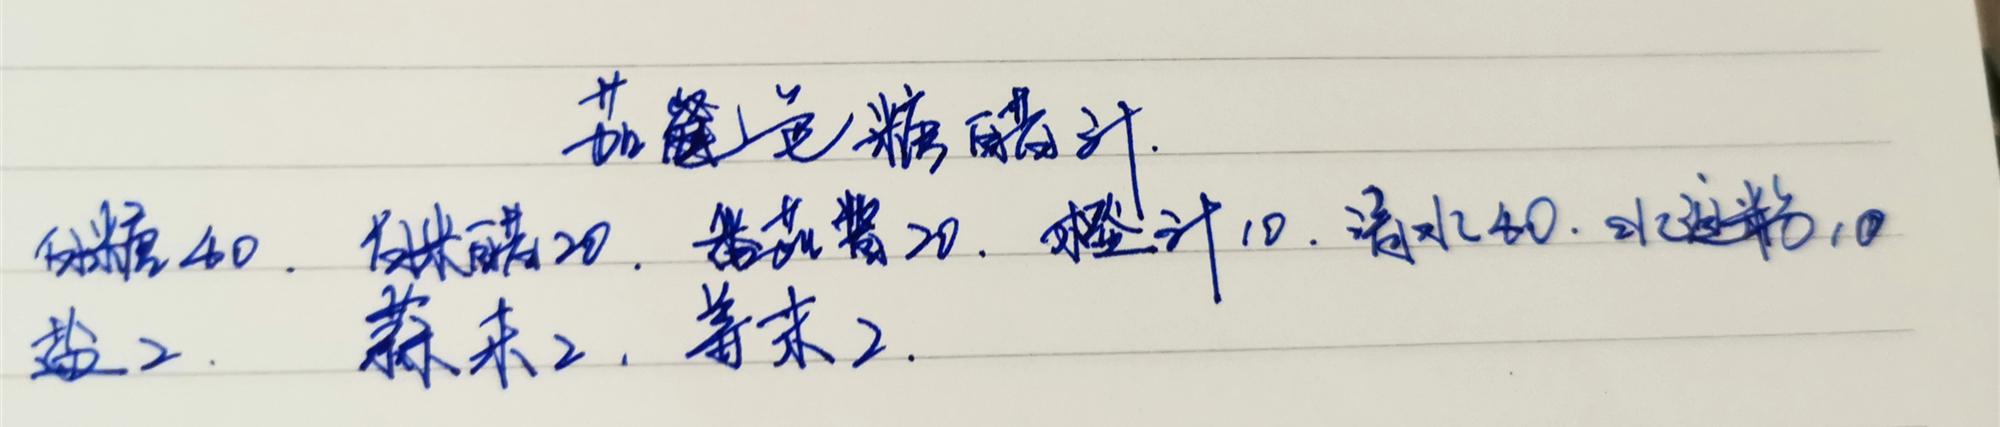 茄酱色糖醋汁.
白糖40. 白米醋20. 番茄酱20. 橙汁10. 清水40. 水淀粉10
盐2. 蒜末2. 姜末2.